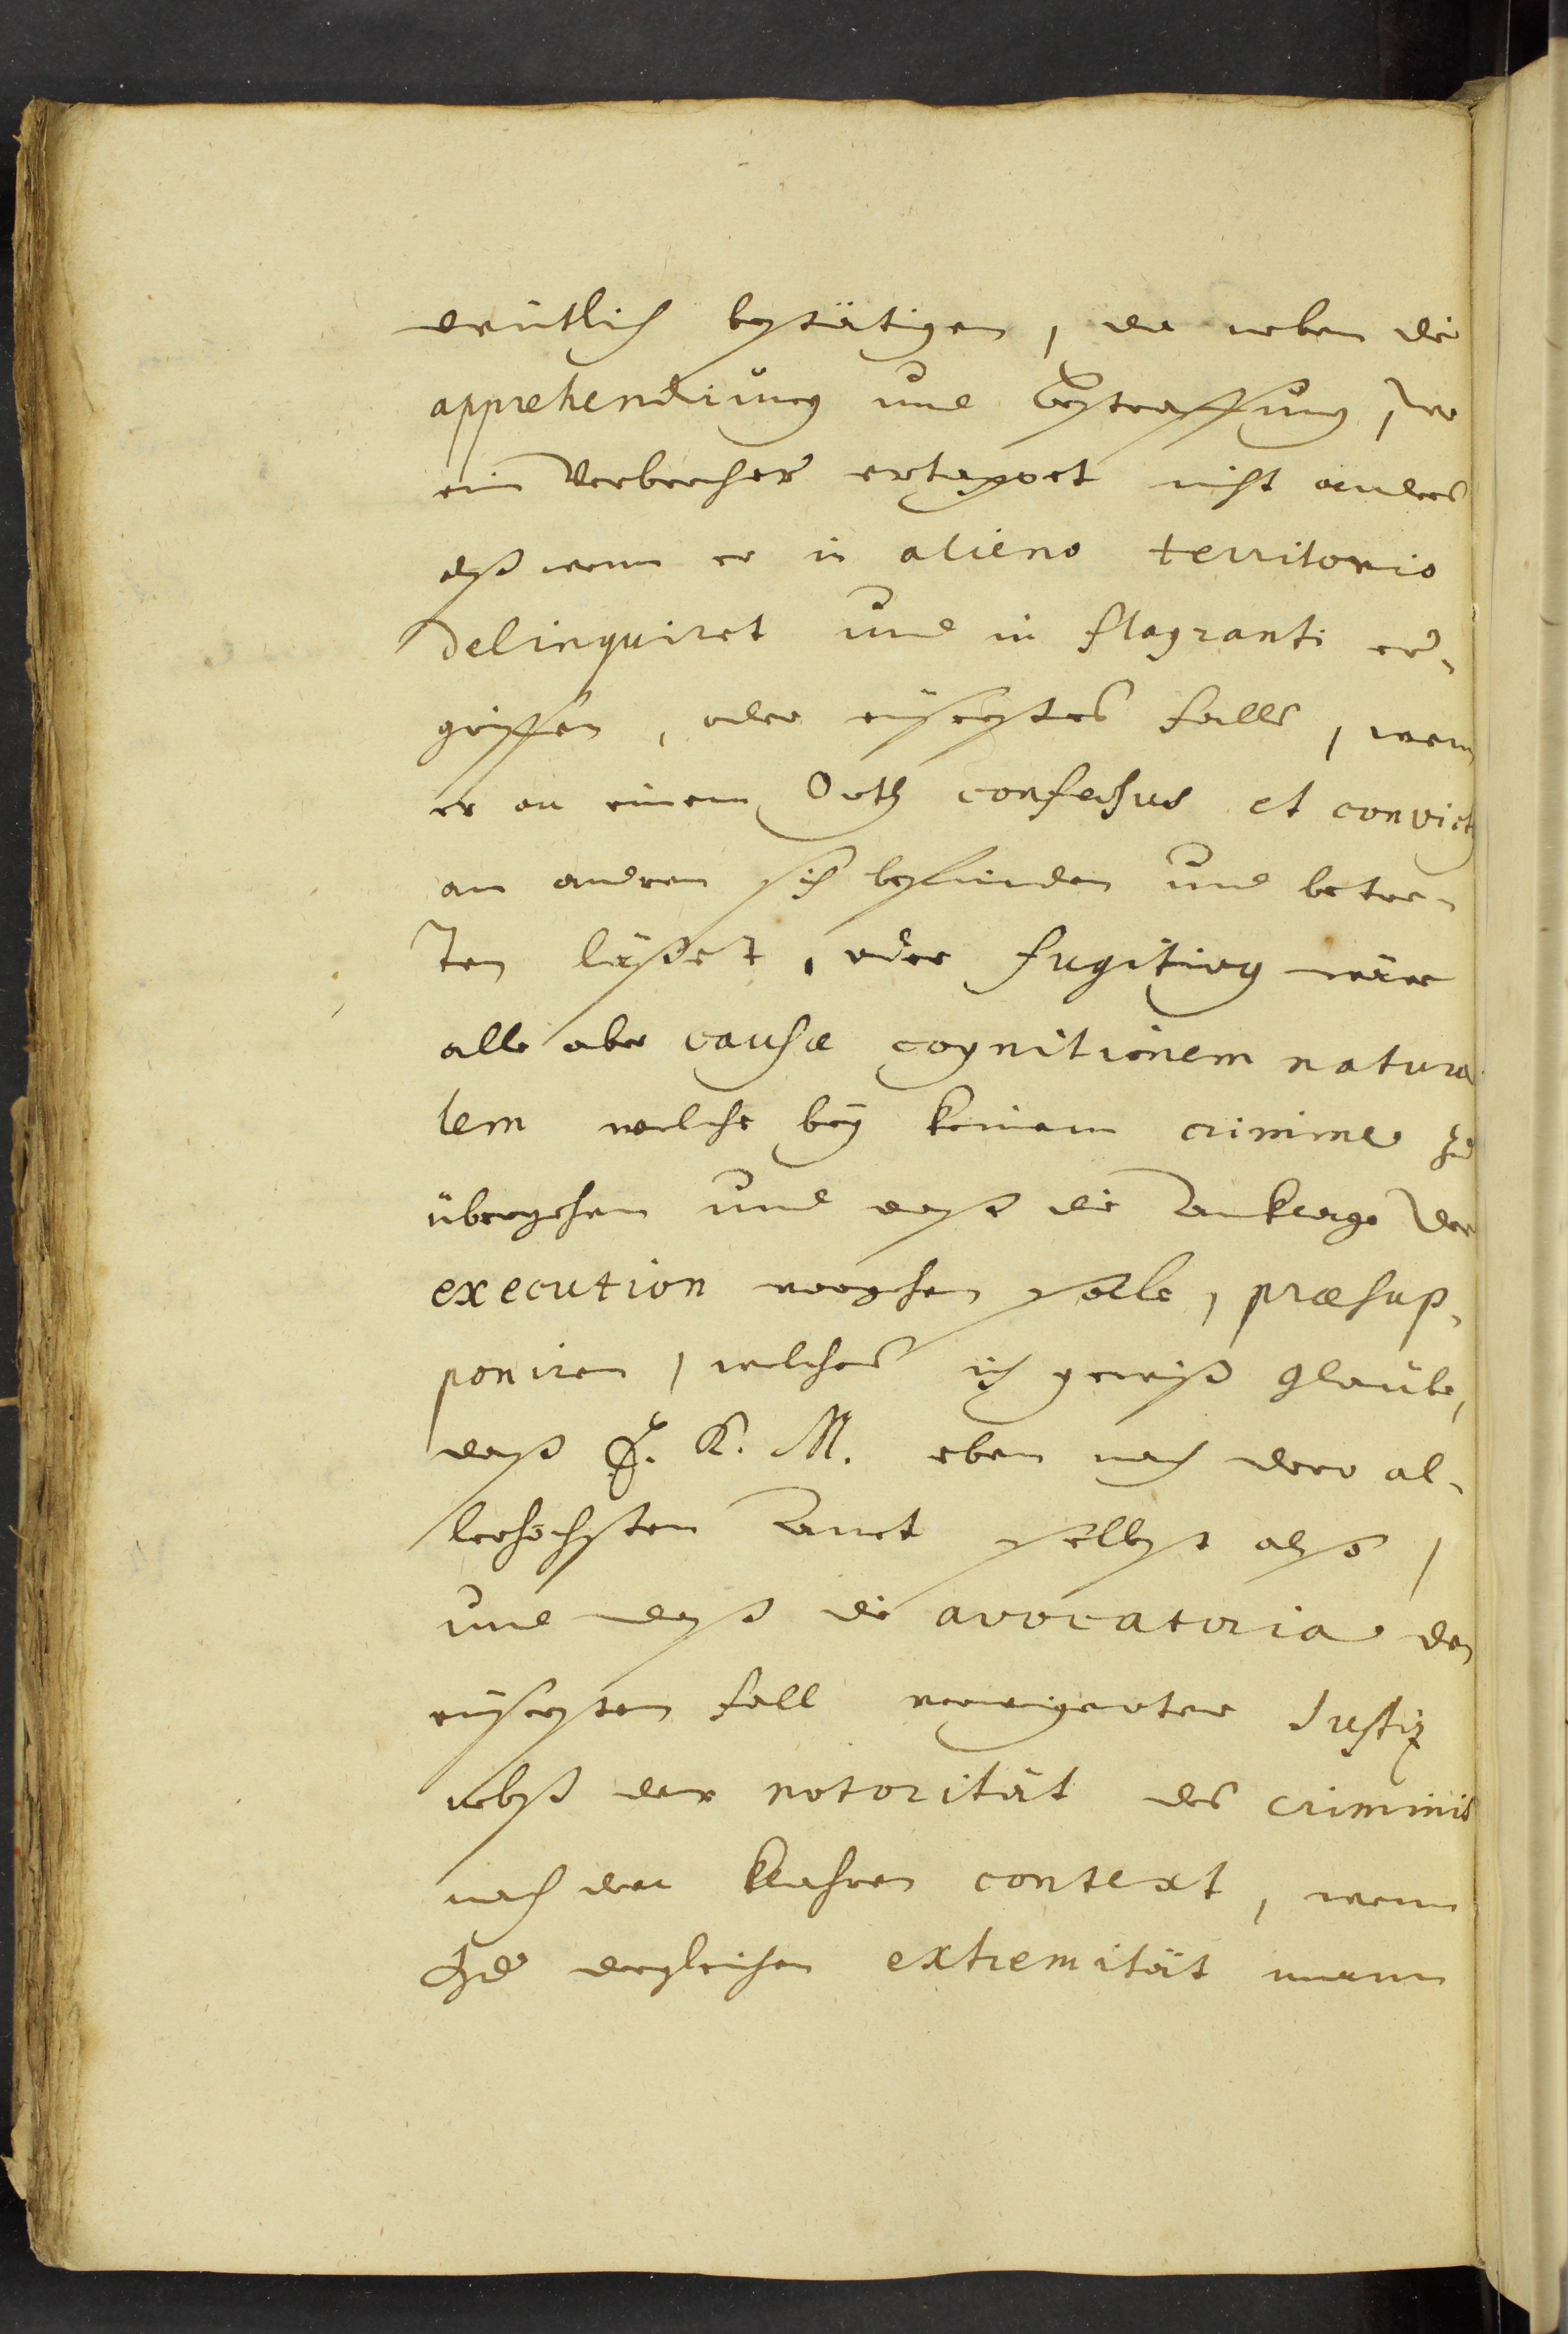 deutlich bestätigen, da neben die
apprehendirung und Bestraffung, wo
ein Verbrecher ertappet nicht anders
alß wenn er in alieno territorio
delinquiret und in flagranti er-
griffen, oder eüserstes falls, wenn
er an einem Orth confessus et convictus
an andern sich befinden und betre-
ten läßet, oder fugitivus wäre
alle aber causæ cognitionem natura
lem welche beÿ keinem crimine zu
übergehen und daß die der
execution vorgehen solle, præsup-
poniren, welches ich gewiß glaube,
daß J. K. M. eben nach dero al-
lerhöchsten selbst also,
und daß die avocatoria den
eüsersten fall verweigerter Justiz
nebst der notorität des criminis
nach den klahren context, wenn
zu dergleichen extremität